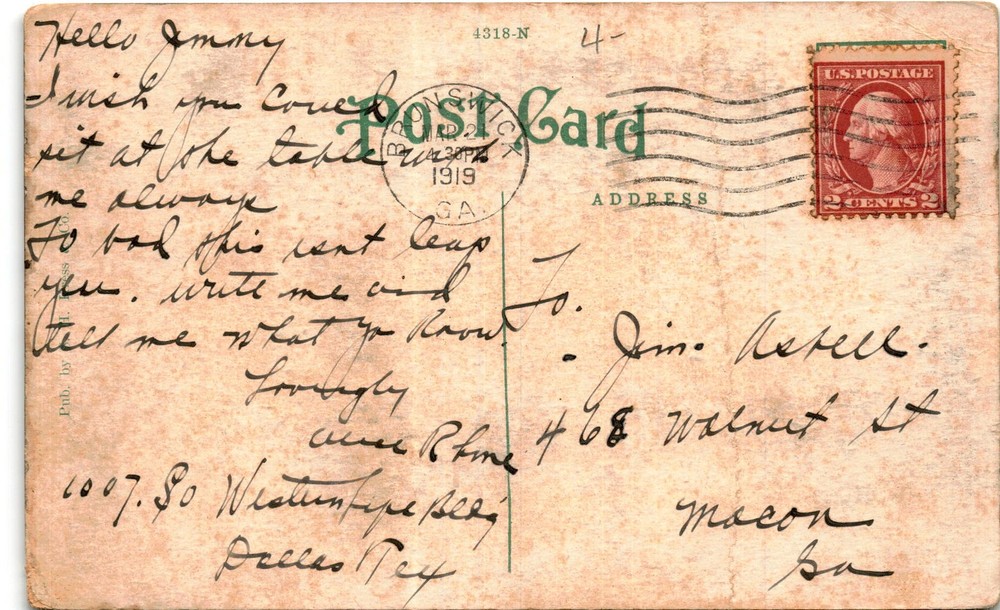 4318-N
4-
Post Card
ADDRESS
BRUNSWICK
MAR 2
4:30PM
1919
GA
U.S. POSTAGE
2 CENTS 2
Hello Jimmy
I wish you Coued
sit at the table with
me always
To bad this isnt leap
year. write me and
tell me what yo know.
Lovingly
Rhine
1007. So Western Bldg
Dallas Tex
To.
Jim. Asbell.
468 Walnut St
Macon
Ga
Pub. by H. Co.